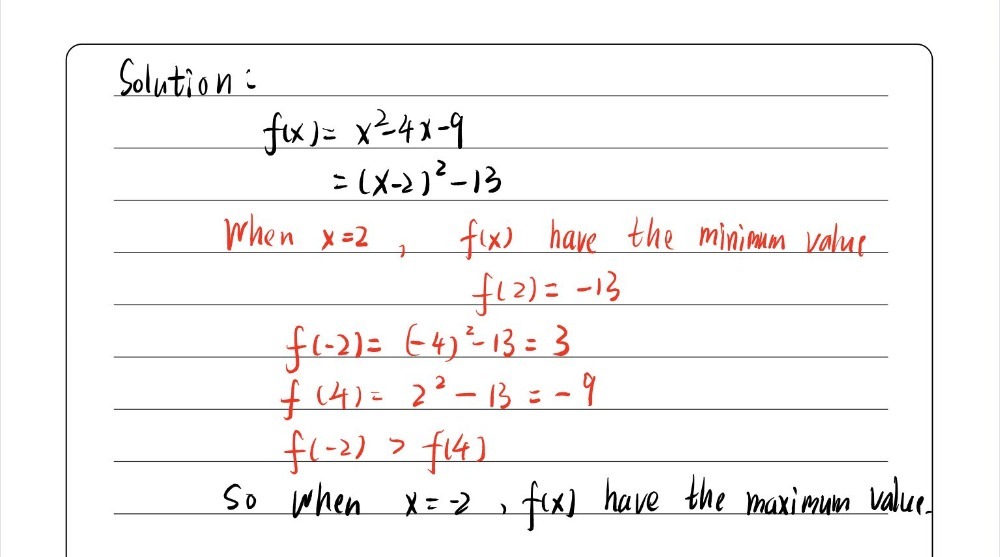 Solution:
f(x)= x²-4x-9
=(x-2)²-13
When x=2, f(x) have the minimum value
f(2)= -13
f(-2)= (-4)²-13=3
f(4)= 2²-13=-9
f(-2) > f(4)
So when x=-2, f(x) have the maximum value.